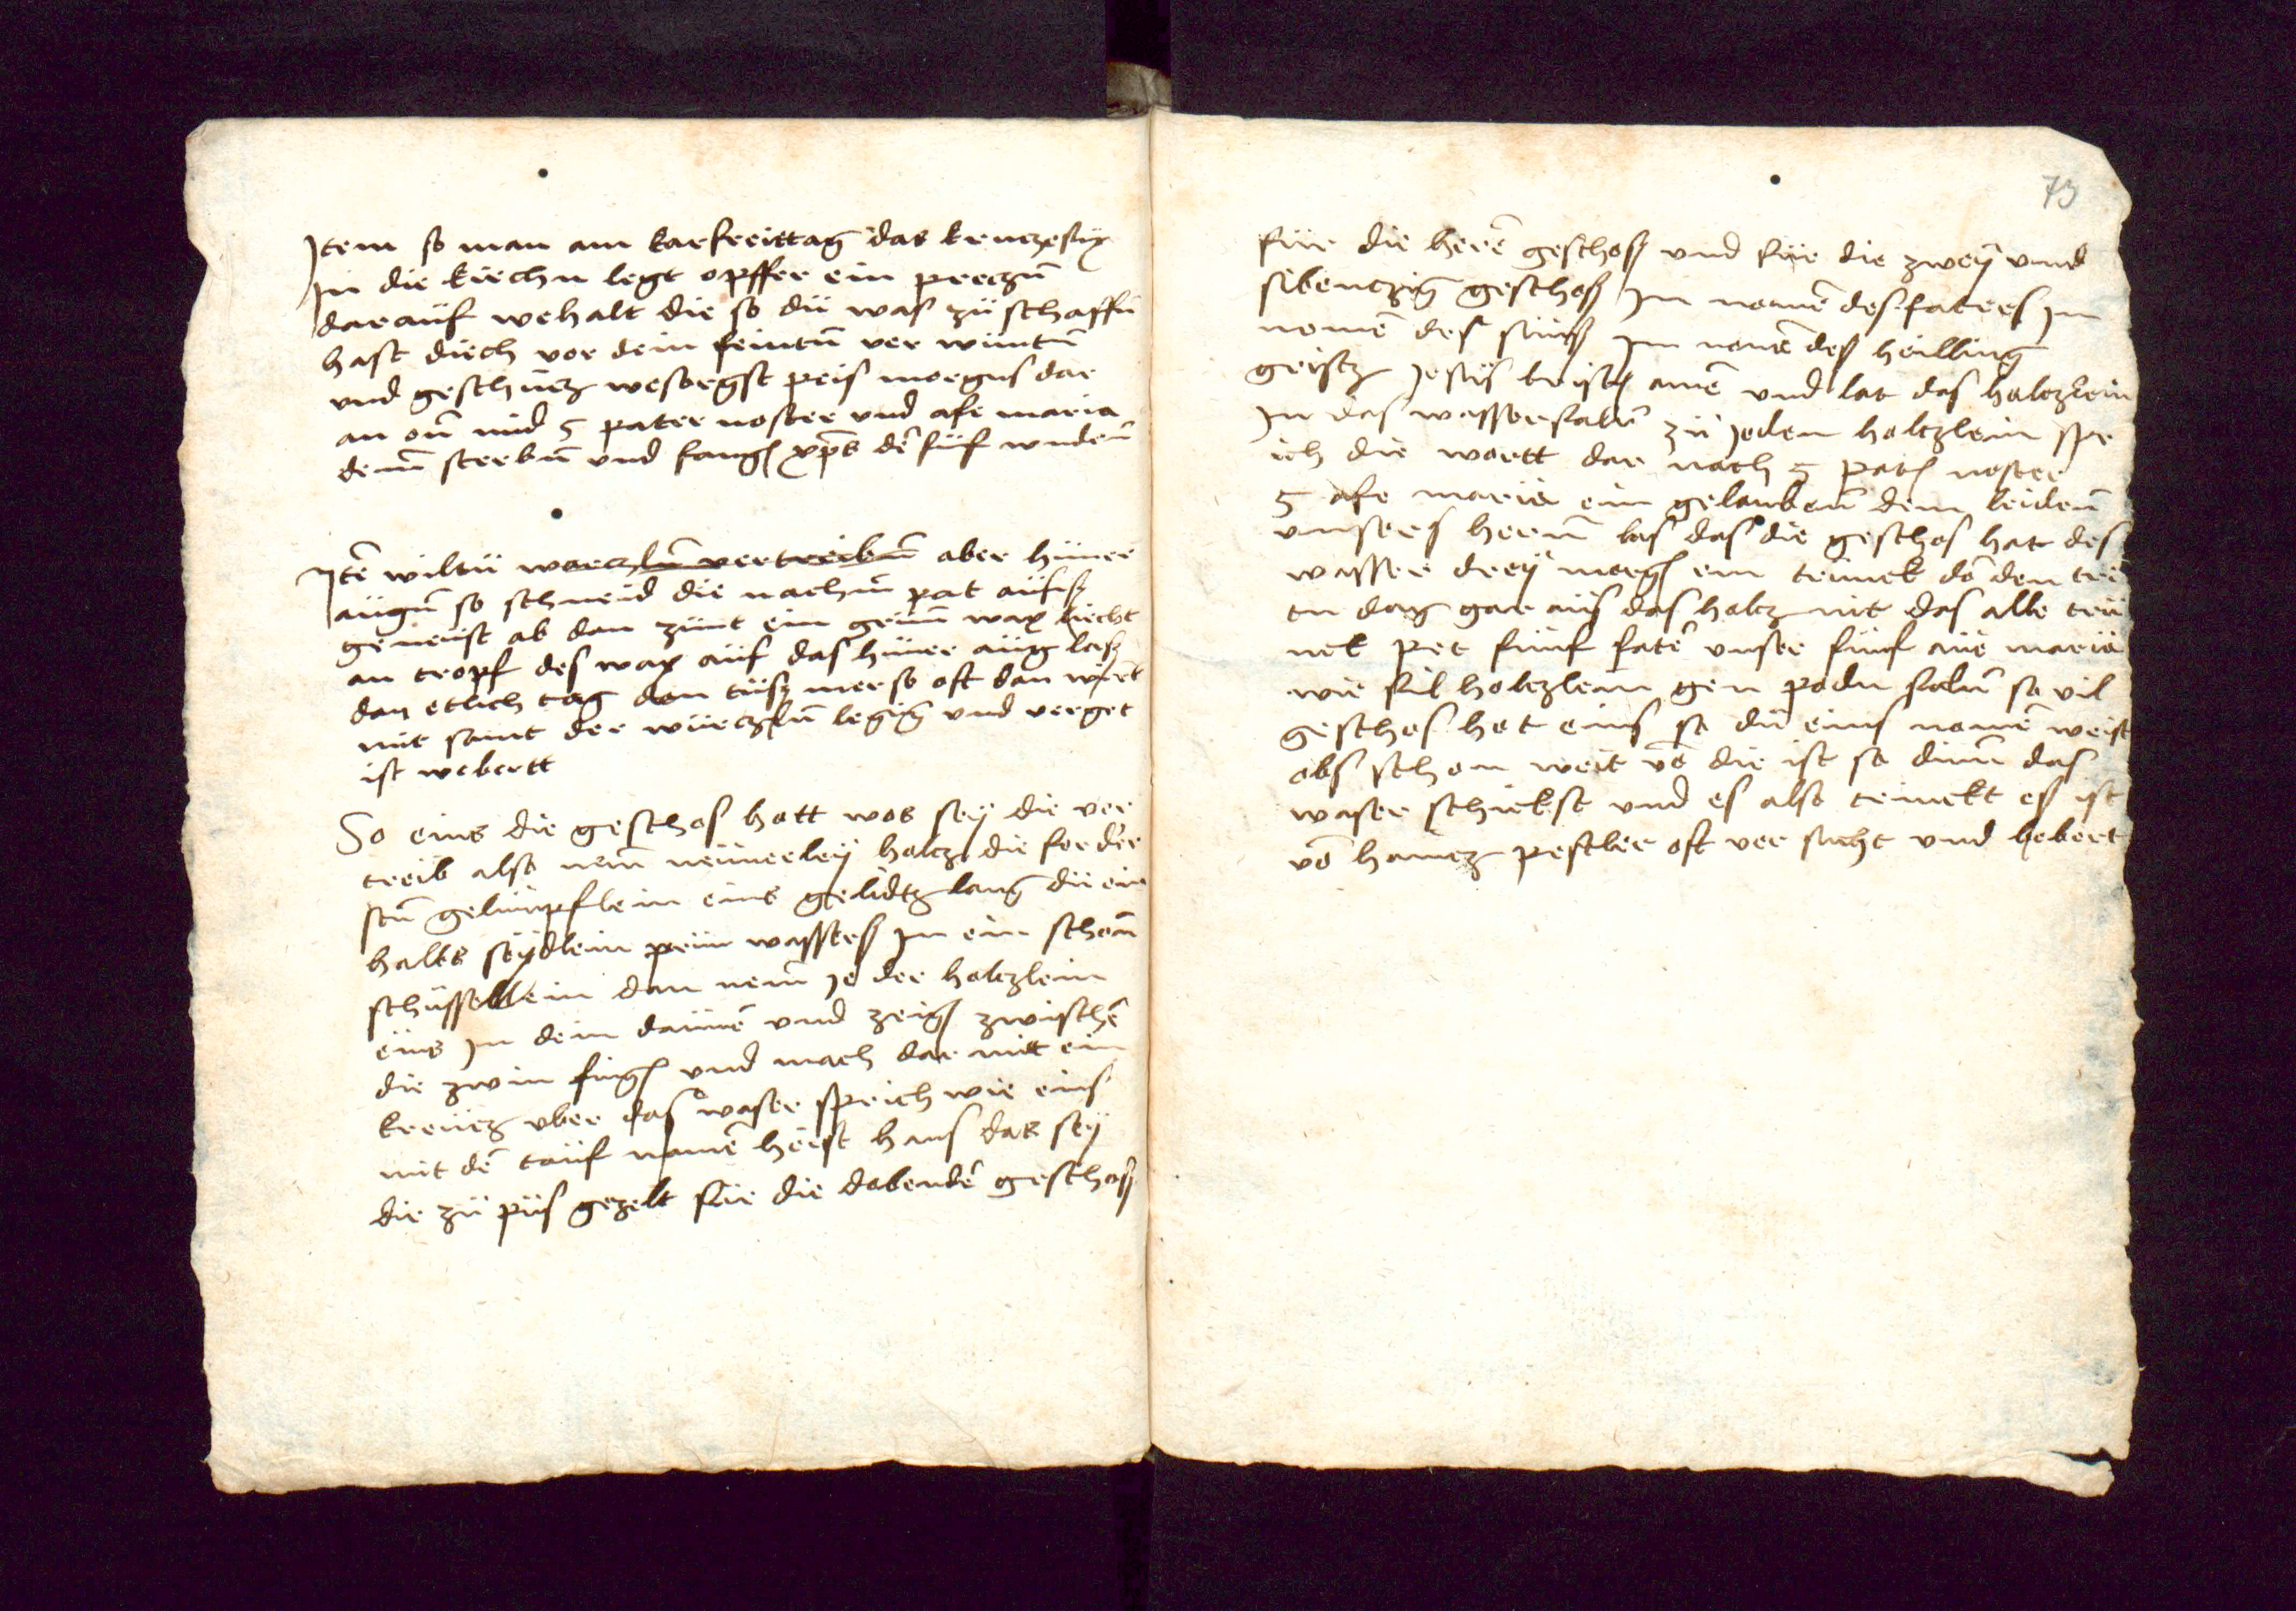 Jtem so man am karfreittag das kruczefix
Jn die kirchn legt opffer ein preczn̄
darauf wehalt die so dü was zü schaffn̄
hast diech vor dein feintn̄ ver wüntn̄
vnd geschücz wesorgst peis morgns dar
an ein mid 5 pater noster vnd afe maria
dem sterbn̄ vnd xp̄s dē füf wndenn̄
Jtē wiltü warczln̄ vertreibn̄ aber hüner
augn̄ so schneid die nach ein pat aufs
genenst ab dan zünt ein grünn wax liecht
an tropf des wax auf das hüner aüg las
dan etlich tag dan tüsz mer so oft dan wirt
mit samt der würczln̄ legig vnd verget
ist webertt
So eins die geschos hatt was sey die ver
treib also nem neünerley holcz die forder
stn̄ gelimpflein eins gelidtz lang dü ein
halbs seydlein prün wassers Jn ein schonn̄
schüssellein dan nem Je der holczlein
eins Jn dein daümē vnd zeigr zwischē
die zwin fingr vnd mach dar mitt ein
kreücz vber das waser sprich wie eins
mit dē tauf namē heist hans das sey
die zü püs gezelt für die dobendē geschos
73
für die herē geschos vnd für die zwey vnd
sibenczig geschos Jm namē des faters Jm
namē des süns Jm namē des heilling
geistz Jesüs kristus amē vnd lat das holczlein
Jn das wasser falln̄ zü Jedem holczlein spr
ich die wortt dar nach 5 patr noster
5 afe maria ein gelaubenn̄ dem leidenn̄
vnsers hernn̄ las das die geschos hat des
wasser drey morgn ein trünck dō den tri
tn dag gar aus das holcz nit das alle trü
nck pet fünf fatēr vnser fünf aüe maria
wie fil holczlein gen podn falln̄ so vil
geschos hat eins so dü eins namē weist
obs schon weit vō die ist so dinn das
waser schickst vnd es also trinckt es ist
vō hancz pestler oft ver sucht vnd bebert